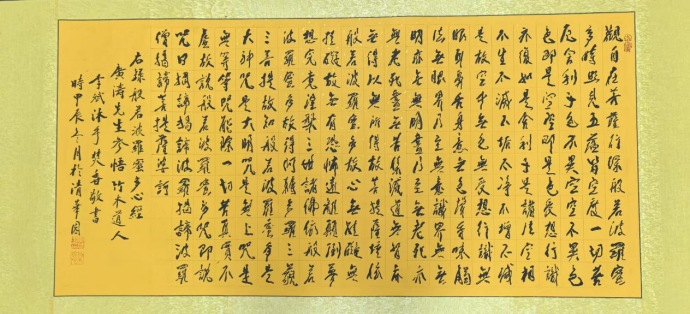 觀自在菩薩行深般若波羅蜜
多時照見五蘊皆空度一切苦
厄舍利子色不異空空不異色
色即是空空即是色受想行識
亦復如是舍利子是諸法空相
不生不滅不垢不淨不增不減
是故空中無色無受想行識無
眼耳鼻舌身意無色聲香味觸
法無眼界乃至無意識界無無
明亦無無明盡乃至無老死亦
無老死盡無苦集滅道無智亦
無得以無所得故菩提薩埵依
般若波羅蜜多故心無罣礙無
罣礙故無有恐怖遠離顛倒夢
想究竟涅槃三世諸佛依般若
波羅蜜多故得阿耨多羅三藐
三菩提故知般若波羅蜜多是
大神咒是大明咒是無上咒是
無等等咒能除一切苦真實不
虛故說般若波羅蜜多咒即說
咒曰揭諦揭諦波羅揭諦波羅
僧揭諦菩提薩婆訶
右錄般若波羅蜜多心經
廣濤先生參悟竹木道人
李斌沐手焚香敬書
時甲辰冬月於清華園